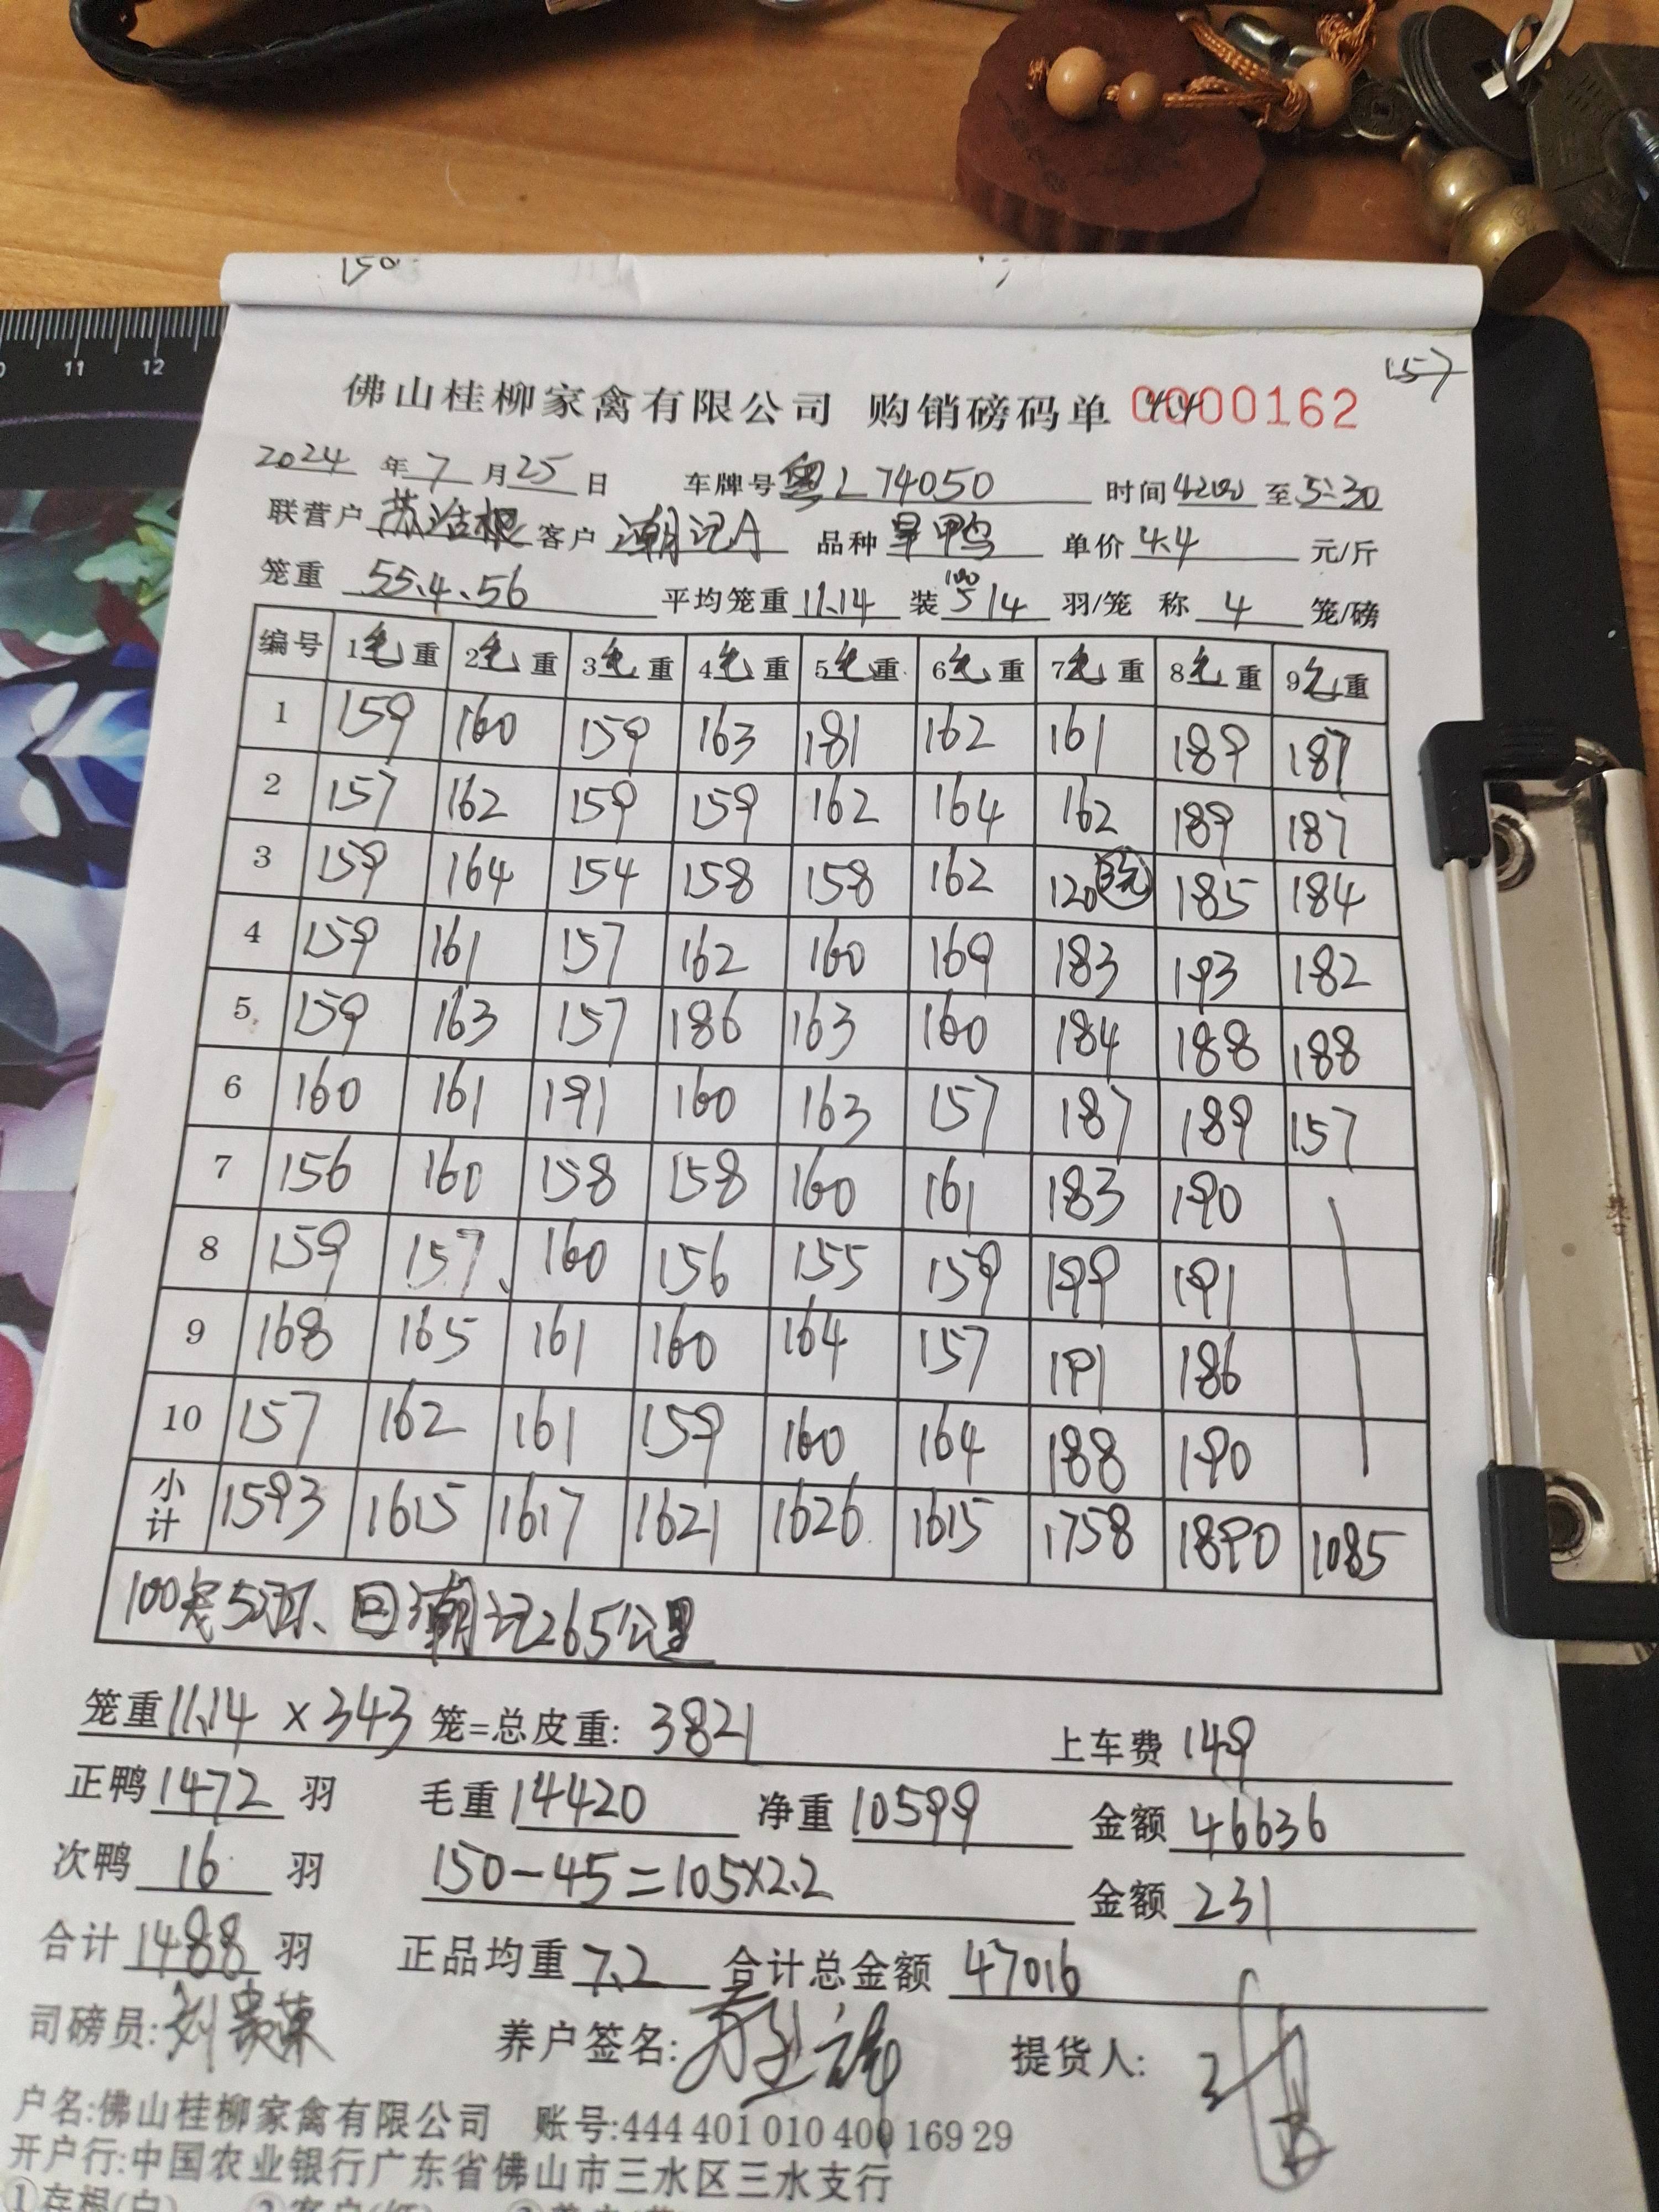 150
157
佛山桂柳家禽有限公司 购销磅码单 0000162
2024 年 7 月 25 日 车牌号 粤L 74050 时间 4:200 至 5:30
联营户 苏洁根 客户 潮记A 品种 旱鸭 单价 4.4 元/斤
笼重 55.4.56 平均笼重 11.14 装 5 14 羽/笼 称 4 笼/磅
100
编号 1毛重 2毛重 3毛重 4毛重 5毛重 6毛重 7毛重 8毛重 9毛重
1 159 160 159 163 181 162 161 189 187
2 157 162 159 159 162 164 162 189 187
3 159 164 154 158 158 162 120 185 184
4 159 161 157 162 160 169 183 193 182
5 159 163 157 186 163 160 184 188 188
6 160 161 191 160 163 157 187 189 157
7 156 160 158 158 160 161 183 190
8 159 157 160 156 155 159 199 191
9 168 165 161 160 164 157 191 186
10 157 162 161 159 160 164 188 190
小计 1593 1615 1617 1621 1626 1615 1758 1890 1085
100笼5羽、回潮记265公里
笼重 11.14 × 343 笼=总皮重: 3821 上车费 149
正鸭 1472 羽 毛重 14420 净重 10599 金额 46636
次鸭 16 羽 150-45=105×2.2 金额 231
合计 1488 羽 正品均重 7.2 合计总金额 47016
司磅员: 养户签名: 提货人:
户名:佛山桂柳家禽有限公司 账号:444 401 010 400 169 29
开户行:中国农业银行广东省佛山市三水区三水支行